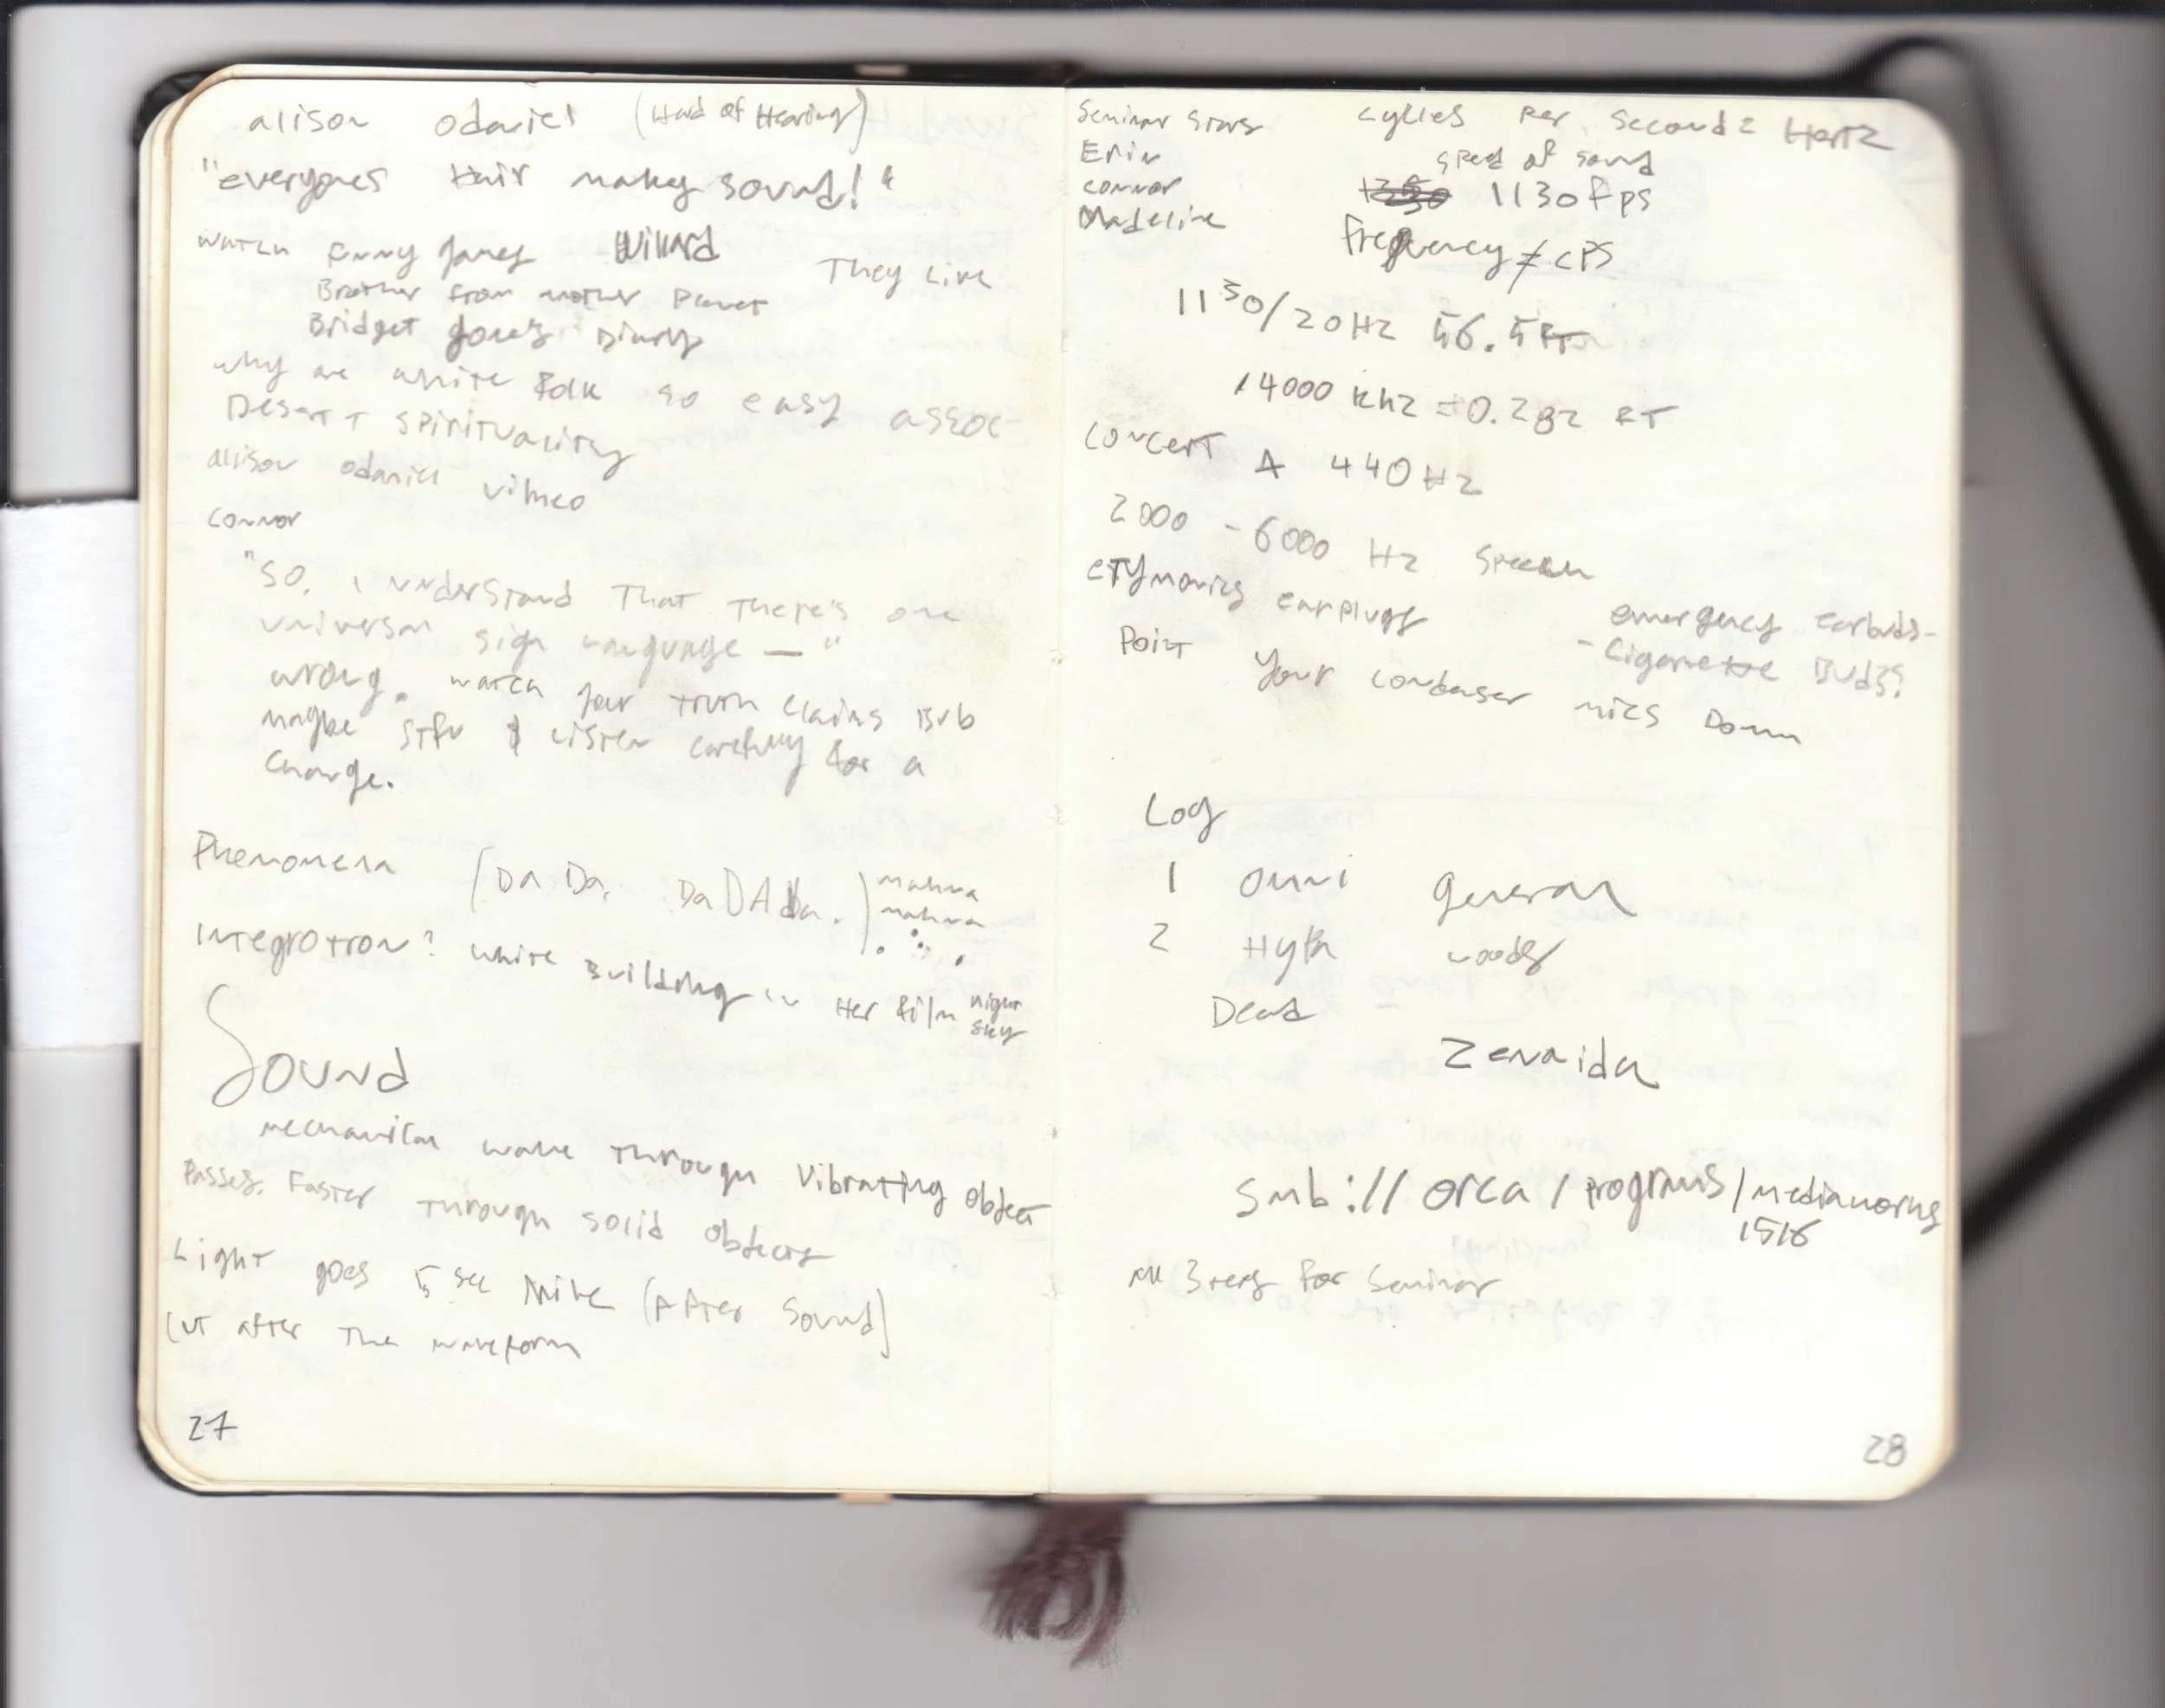 alison odaniel (Hard of Hearing)
"everyones Hair makes sound!"
watch Funny Games Willard They Live
Brother from another Planet
Bridget Jones's Diary
why are white folk so easy assoc-
Desert + spirituality
allison odaniel vimeo
connor
"SO, i understand that there's one
universal sign language — "
wrong. watch your truth claims Bub
maybe stfu & listen carefully for a
change.
Phenomena (Da Da, Da DA Da.) mahna
mahna
Integrotron? White Building in Her film night
sky
Sound
mechanical wave through vibrating object
Passes Faster through solid objects
Light goes 5 sec mile (After Sound)
Cut after the waveform
27
Seminar Stars
Erin
connor
Madeline
cylces per second = Hertz
speed of sound
1130 fps
frequency ≠ CPS
1130/20Hz 56.5 FT
14000 khz = 0.282 FT
concert A 440 Hz
2000 - 6000 Hz Speech
etymonics earplugs
emergency earbuds-
- Cigarette Buds?
Point your condenser mics Down
Log
1 Omni general
2 Hyper woods
Dead
Zenaida
smb://orca/programs/mediaworks
1516
All 3 texts for Seminar
28